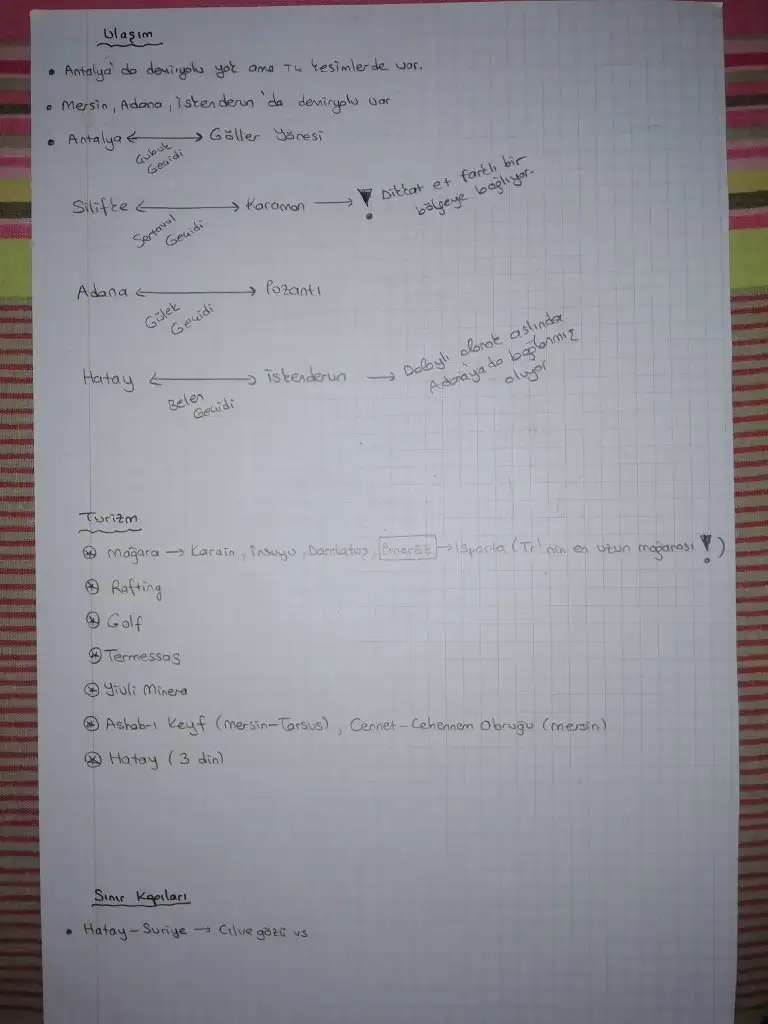 Ulaşım
• Antalya'da demiryolu yok ama kesimlerde var.
• Mersin, Adana, İskenderun'da demiryolu var
• Antalya ↔ Göller Yöresi
Çubuk
Geçidi
Silifke ↔ Karaman → ! Dikkat et farklı bir
bölgeye bağlıyor.
Sertavul
Geçidi
Adana ↔ Pozantı
Gülek
Geçidi
Hatay ↔ İskenderun → Dolaylı olarak aslında
Adana'ya da bağlanmış
oluyor
Belen
Geçidi
Turizm
⊛ Mağara → Karain, İnsuyu, Damlataş, Pınargöz → Isparta (Tr'nin en uzun mağarası !)
⊛ Rafting
⊛ Golf
⊛ Termessos
⊛ Yivli Minare
⊛ Ashab-ı Keyf (Mersin-Tarsus), Cennet-Cehennem Obruğu (Mersin)
⊛ Hatay (3 din)
Sınır Kapıları
• Hatay-Suriye → Cilvegözü vs